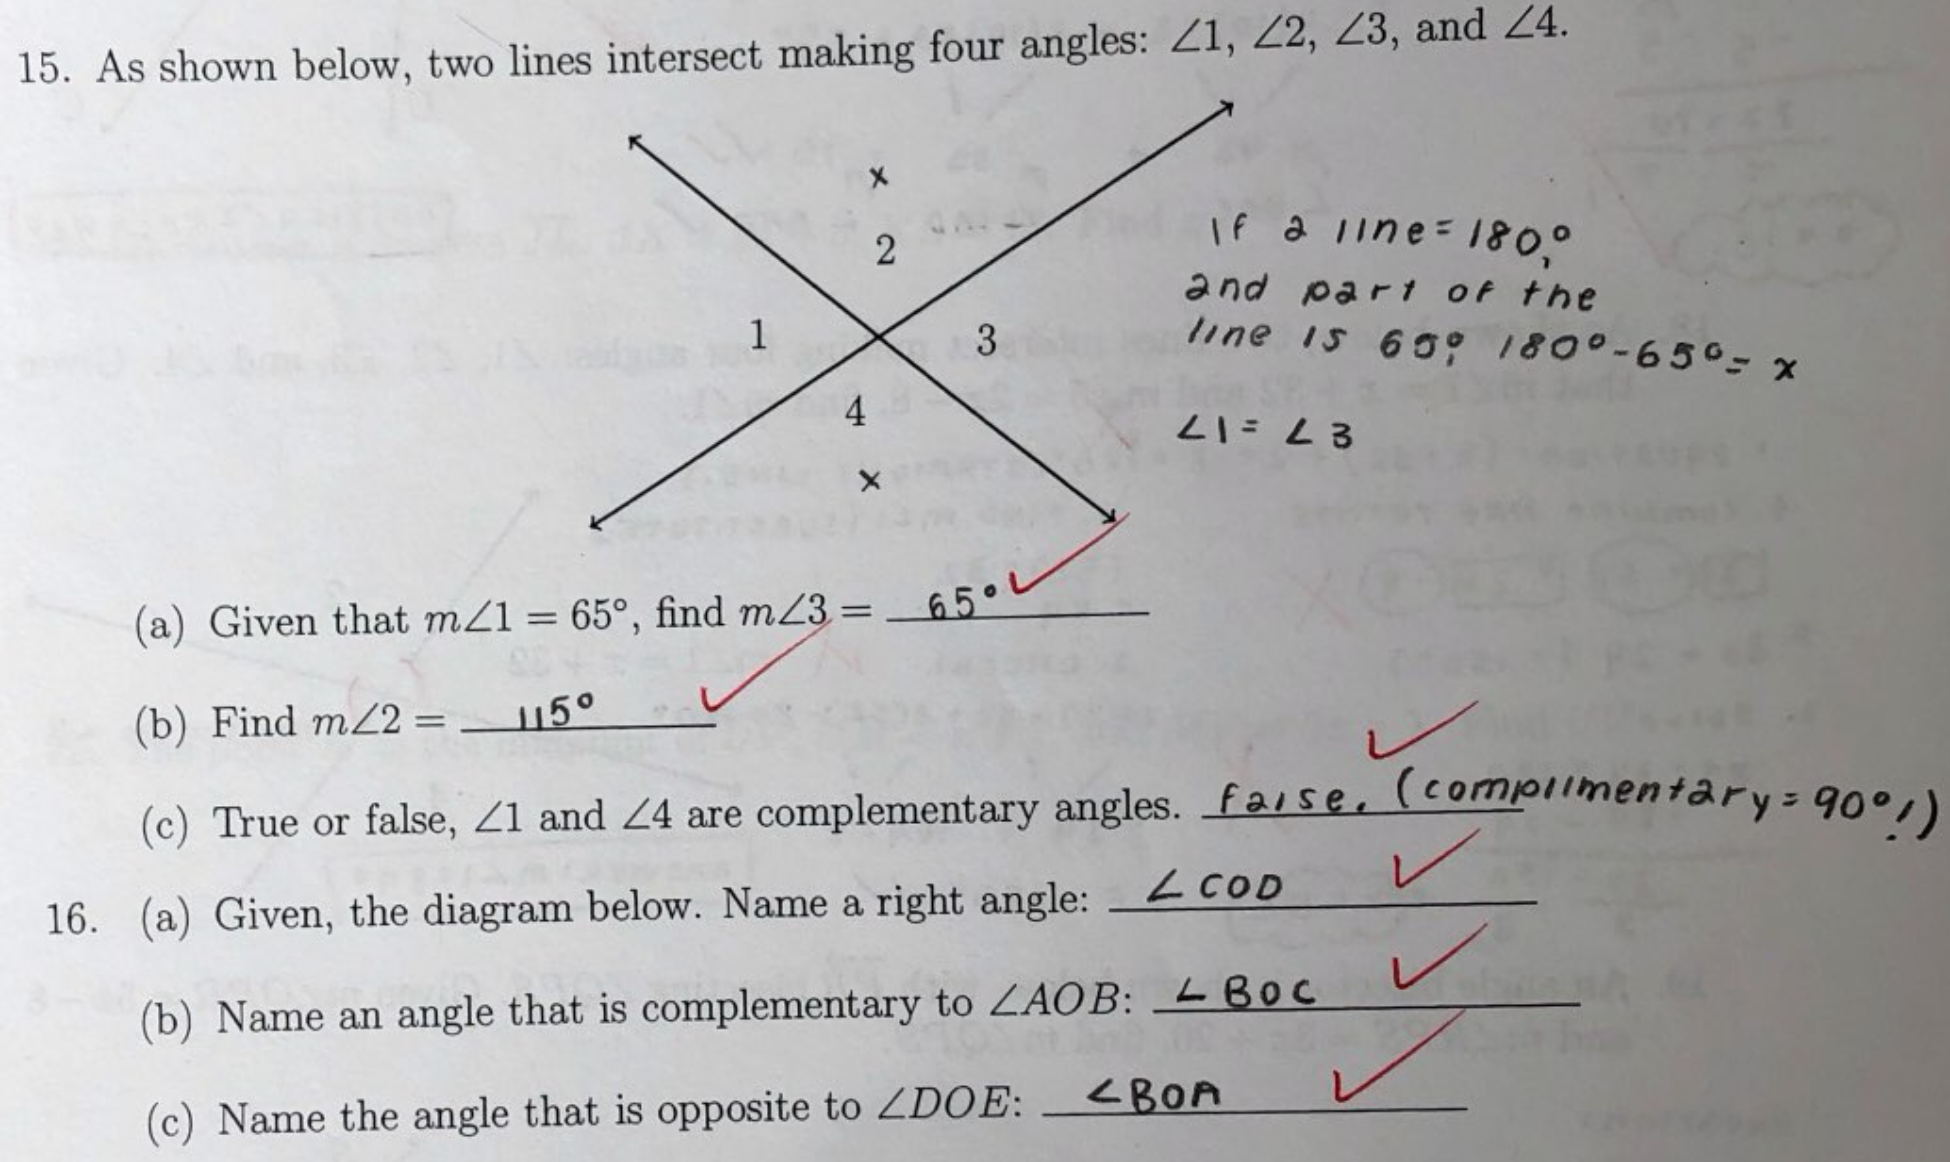 15. As shown below, two lines intersect making four angles: ∠1, ∠2, ∠3, and ∠4.
x
2
1
3
4
x
If a line = 180°,
and part of the
line is 65°, 180° - 65° = x
∠1 = ∠3
(a) Given that m∠1 = 65°, find m∠3 = 65°
(b) Find m∠2 = 115°
(c) True or false, ∠1 and ∠4 are complementary angles. false. (complimentary = 90°!)
16. (a) Given, the diagram below. Name a right angle: ∠COD
(b) Name an angle that is complementary to ∠AOB: ∠BOC
(c) Name the angle that is opposite to ∠DOE: ∠BOA